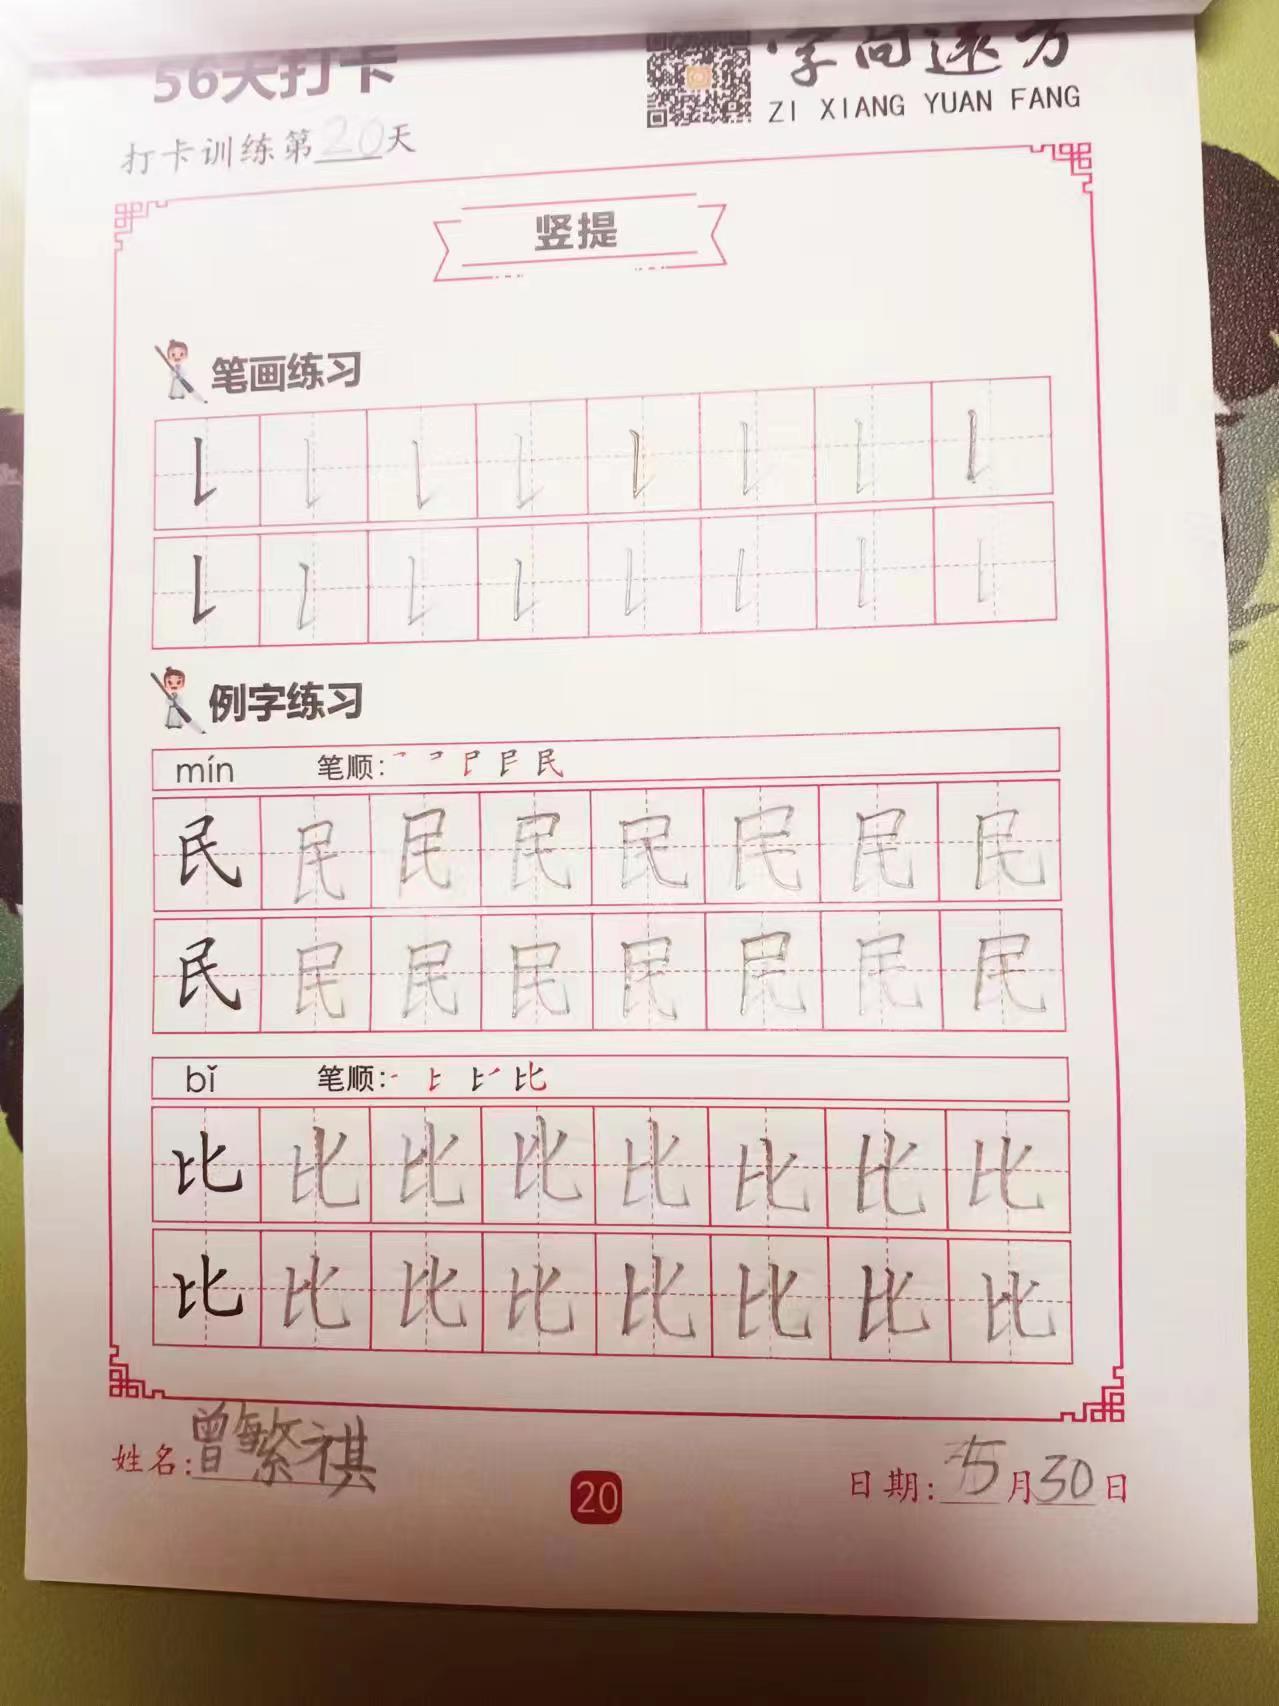 56天打卡
字向远方
ZI XIANG YUAN FANG
打卡训练第20天
竖提
笔画练习
例字练习
mín 笔顺:
民
民 民 民 民 民 民 民 民
民 民 民 民 民 民 民 民
bǐ 笔顺:
比
比 比 比 比 比 比 比 比
比 比 比 比 比 比 比 比
姓名:曾繁祺
20
日期:5月30日